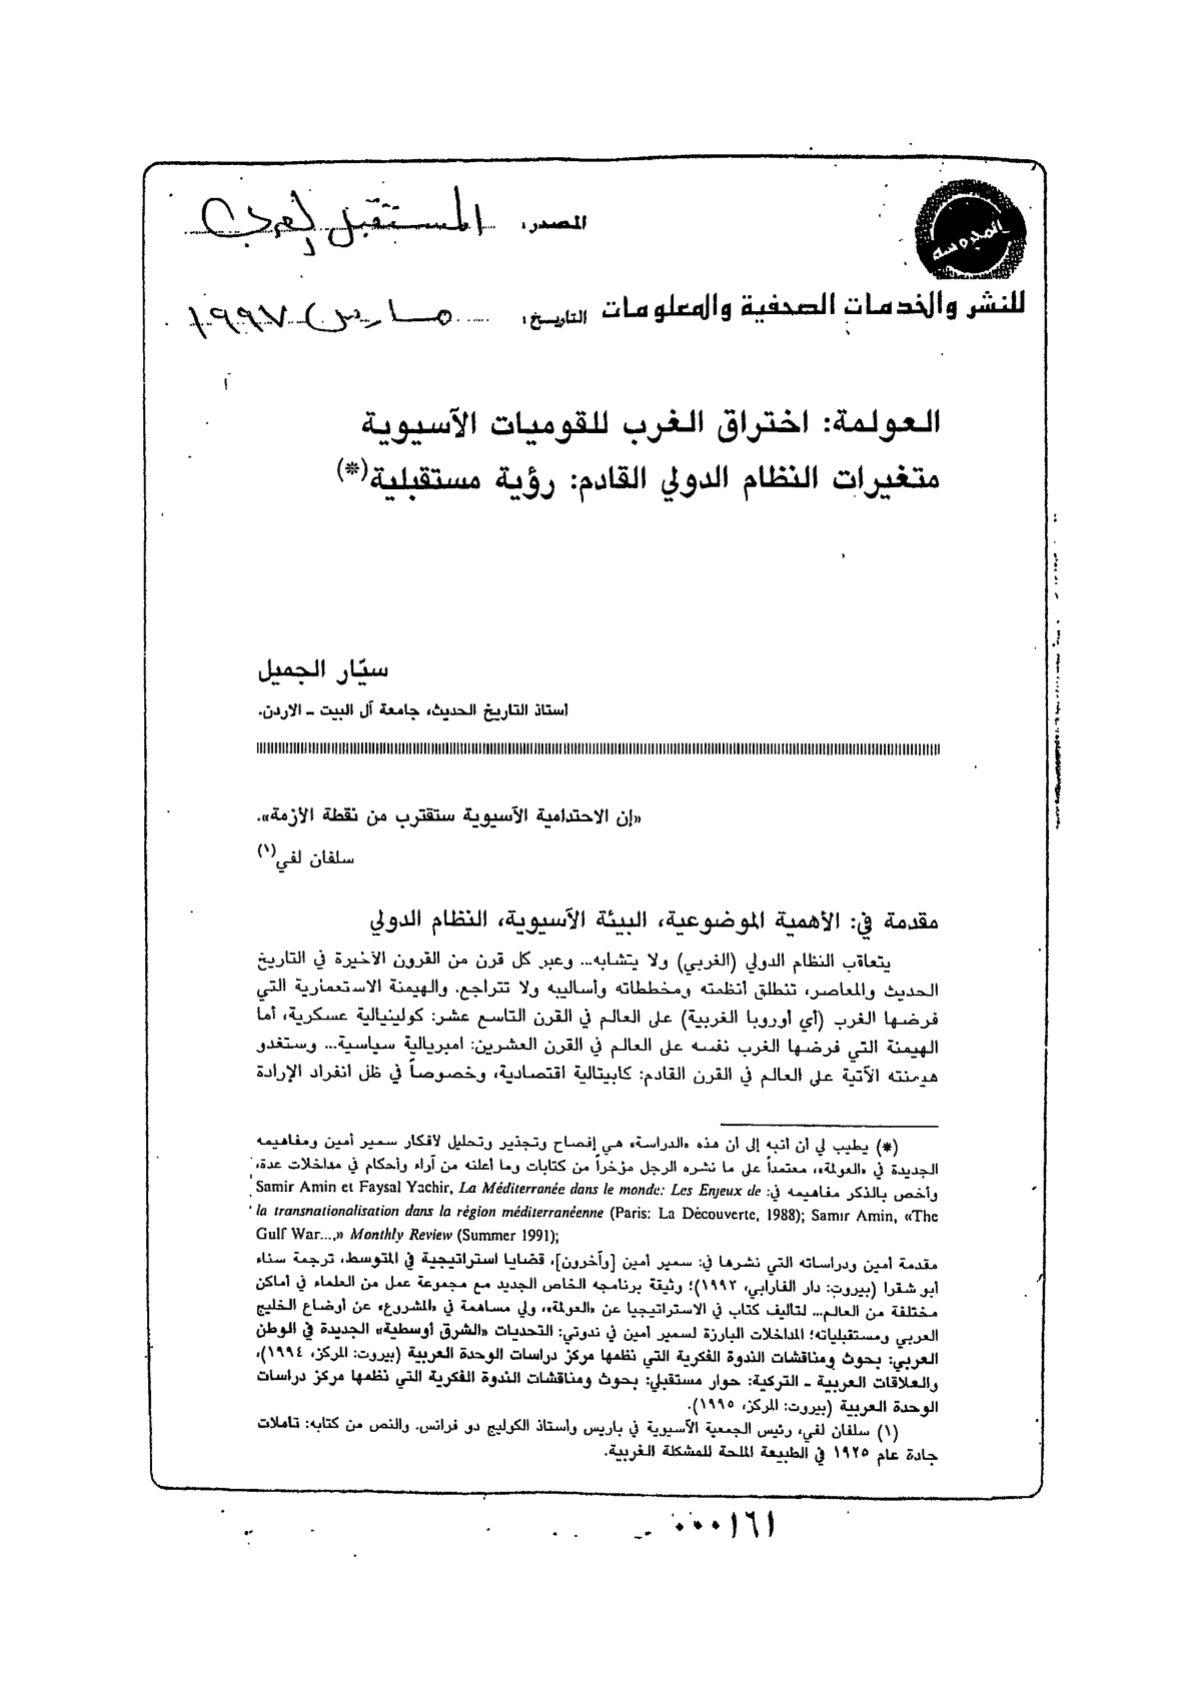 المحروسة
المصدر: المستقبل العربي
للنشر والخدمات الصحفية والمعلومات التاريخ: مارس ١٩٩٧
العولمة: اختراق الغرب للقوميات الآسيوية
متغيرات النظام الدولي القادم: رؤية مستقبلية(*)
سيّار الجميل
أستاذ التاريخ الحديث، جامعة آل البيت ـ الاردن.
«إن الاحتدامية الآسيوية ستقترب من نقطة الأزمة».
سلفان لفي(١)
مقدمة في: الأهمية الموضوعية، البيئة الآسيوية، النظام الدولي
يتعاقب النظام الدولي (الغربي) ولا يتشابه... وعبر كل قرن من القرون الأخيرة في التاريخ
الحديث والمعاصر، تنطلق أنظمته ومخططاته وأساليبه ولا تتراجع. والهيمنة الاستعمارية التي
فرضها الغرب (أي أوروبا الغربية) على العالم في القرن التاسع عشر: كولينيالية عسكرية، أما
الهيمنة التي فرضها الغرب نفسه على العالم في القرن العشرين: امبريالية سياسية... وستغدو
هيمنته الآتية على العالم في القرن القادم: كابيتالية اقتصادية، وخصوصاً في ظل انفراد الإرادة
(*) يطيب لي أن أنبه إلى أن هذه «الدراسة» هي إفصاح وتجذير وتحليل لأفكار سمير أمين ومفاهيمه
الجديدة في «العولمة»، معتمداً على ما نشره الرجل مؤخراً من كتابات وما أعلنه من آراء وأحكام في مداخلات عدة،
وأخص بالذكر مفاهيمه في: Samir Amin et Faysal Yachir, La Méditerranée dans le monde: Les Enjeux de
la transnationalisation dans la région méditerranéenne (Paris: La Découverte, 1988); Samir Amin, «The
Gulf War...,» Monthly Review (Summer 1991);
مقدمة أمين ودراساته التي نشرها في: سمير أمين [وآخرون]، قضايا استراتيجية في المتوسط، ترجمة سناء
أبو شقرا (بيروت: دار الفارابي، ١٩٩٢)؛ وثيقة برنامجه الخاص الجديد مع مجموعة عمل من العلماء في أماكن
مختلفة من العالم... لتأليف كتاب في الاستراتيجيا عن «العولمة»، ولي مساهمة في «المشروع» عن أوضاع الخليج
العربي ومستقبلياته؛ المداخلات البارزة لسمير أمين في ندوتي: التحديات «الشرق أوسطية» الجديدة في الوطن
العربي: بحوث ومناقشات الندوة الفكرية التي نظمها مركز دراسات الوحدة العربية (بيروت: المركز، ١٩٩٤)،
والعلاقات العربية ـ التركية: حوار مستقبلي: بحوث ومناقشات الندوة الفكرية التي نظمها مركز دراسات
الوحدة العربية (بيروت: المركز، ١٩٩٥).
(١) سلفان لفي، رئيس الجمعية الآسيوية في باريس وأستاذ الكوليج دو فرانس. والنص من كتابه: تأملات
جادة عام ١٩٢٥ في الطبيعة الملحة للمشكلة الغربية.
٠٠٠١٦١